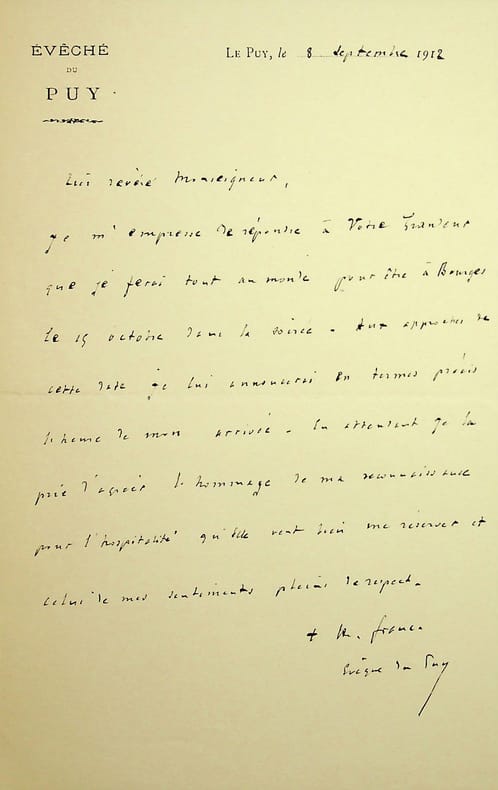 ÉVÊCHÉ
DU
PUY
LE PUY, le 8 septembre 1912
Très révéré Monseigneur,
Je m'empresse de répondre à Votre Grandeur
que je ferai tout au monde pour être à Bourges
le 15 octobre dans la soirée. Aux approches de
cette date je lui annoncerai en termes précis
l'heure de mon arrivée. En attendant je la
prie d'agréer l'hommage de ma reconnaissance
pour l'hospitalité qu'elle veut bien me réserver et
celui de mes sentiments pleins de respect.
+ Th. franc.
Evêque du Puy